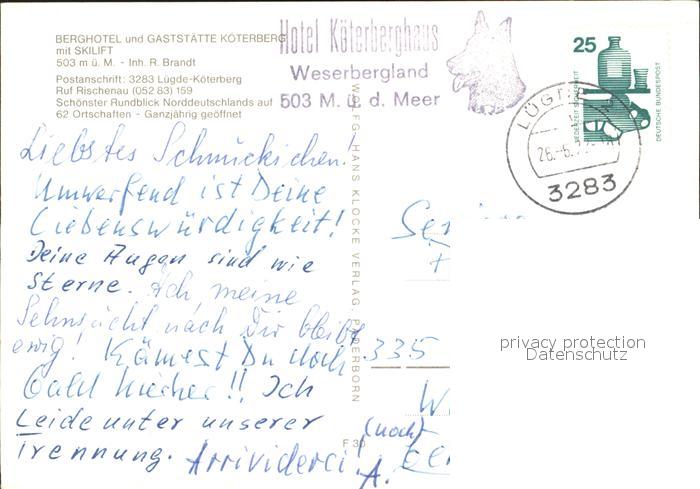 BERGHOTEL und GASTSTÄTTE KÖTERBERG
mit SKILIFT
503 m ü. M. - Inh. R. Brandt
Postanschrift: 3283 Lügde-Köterberg
Ruf Rischenau (052 83) 159
Schönster Rundblick Norddeutschlands auf
62 Ortschaften - Ganzjährig geöffnet
Hotel Köterberghaus
Weserbergland
503 M. ü. d. Meer
25
JEDERZEIT SICHERHEIT
DEUTSCHE BUNDESPOST
LÜGD
26.-6.7
3283
Liebstes Schmückichen!
Umwerfend ist Deine
Liebenswürdigkeit!
Deine Augen sind wie
Sterne. Ach, meine
Sehnsucht nach Dir bleibt
ewig! Kämest Du doch
bald hierher!! Ich
Leide unter unserer
Trennung. Arrividerci!
A.
WOLFG. HANS KLOCKE VERLAG PADERBORN
F 30
335
W
(noch)
privacy protection
Datenschutz